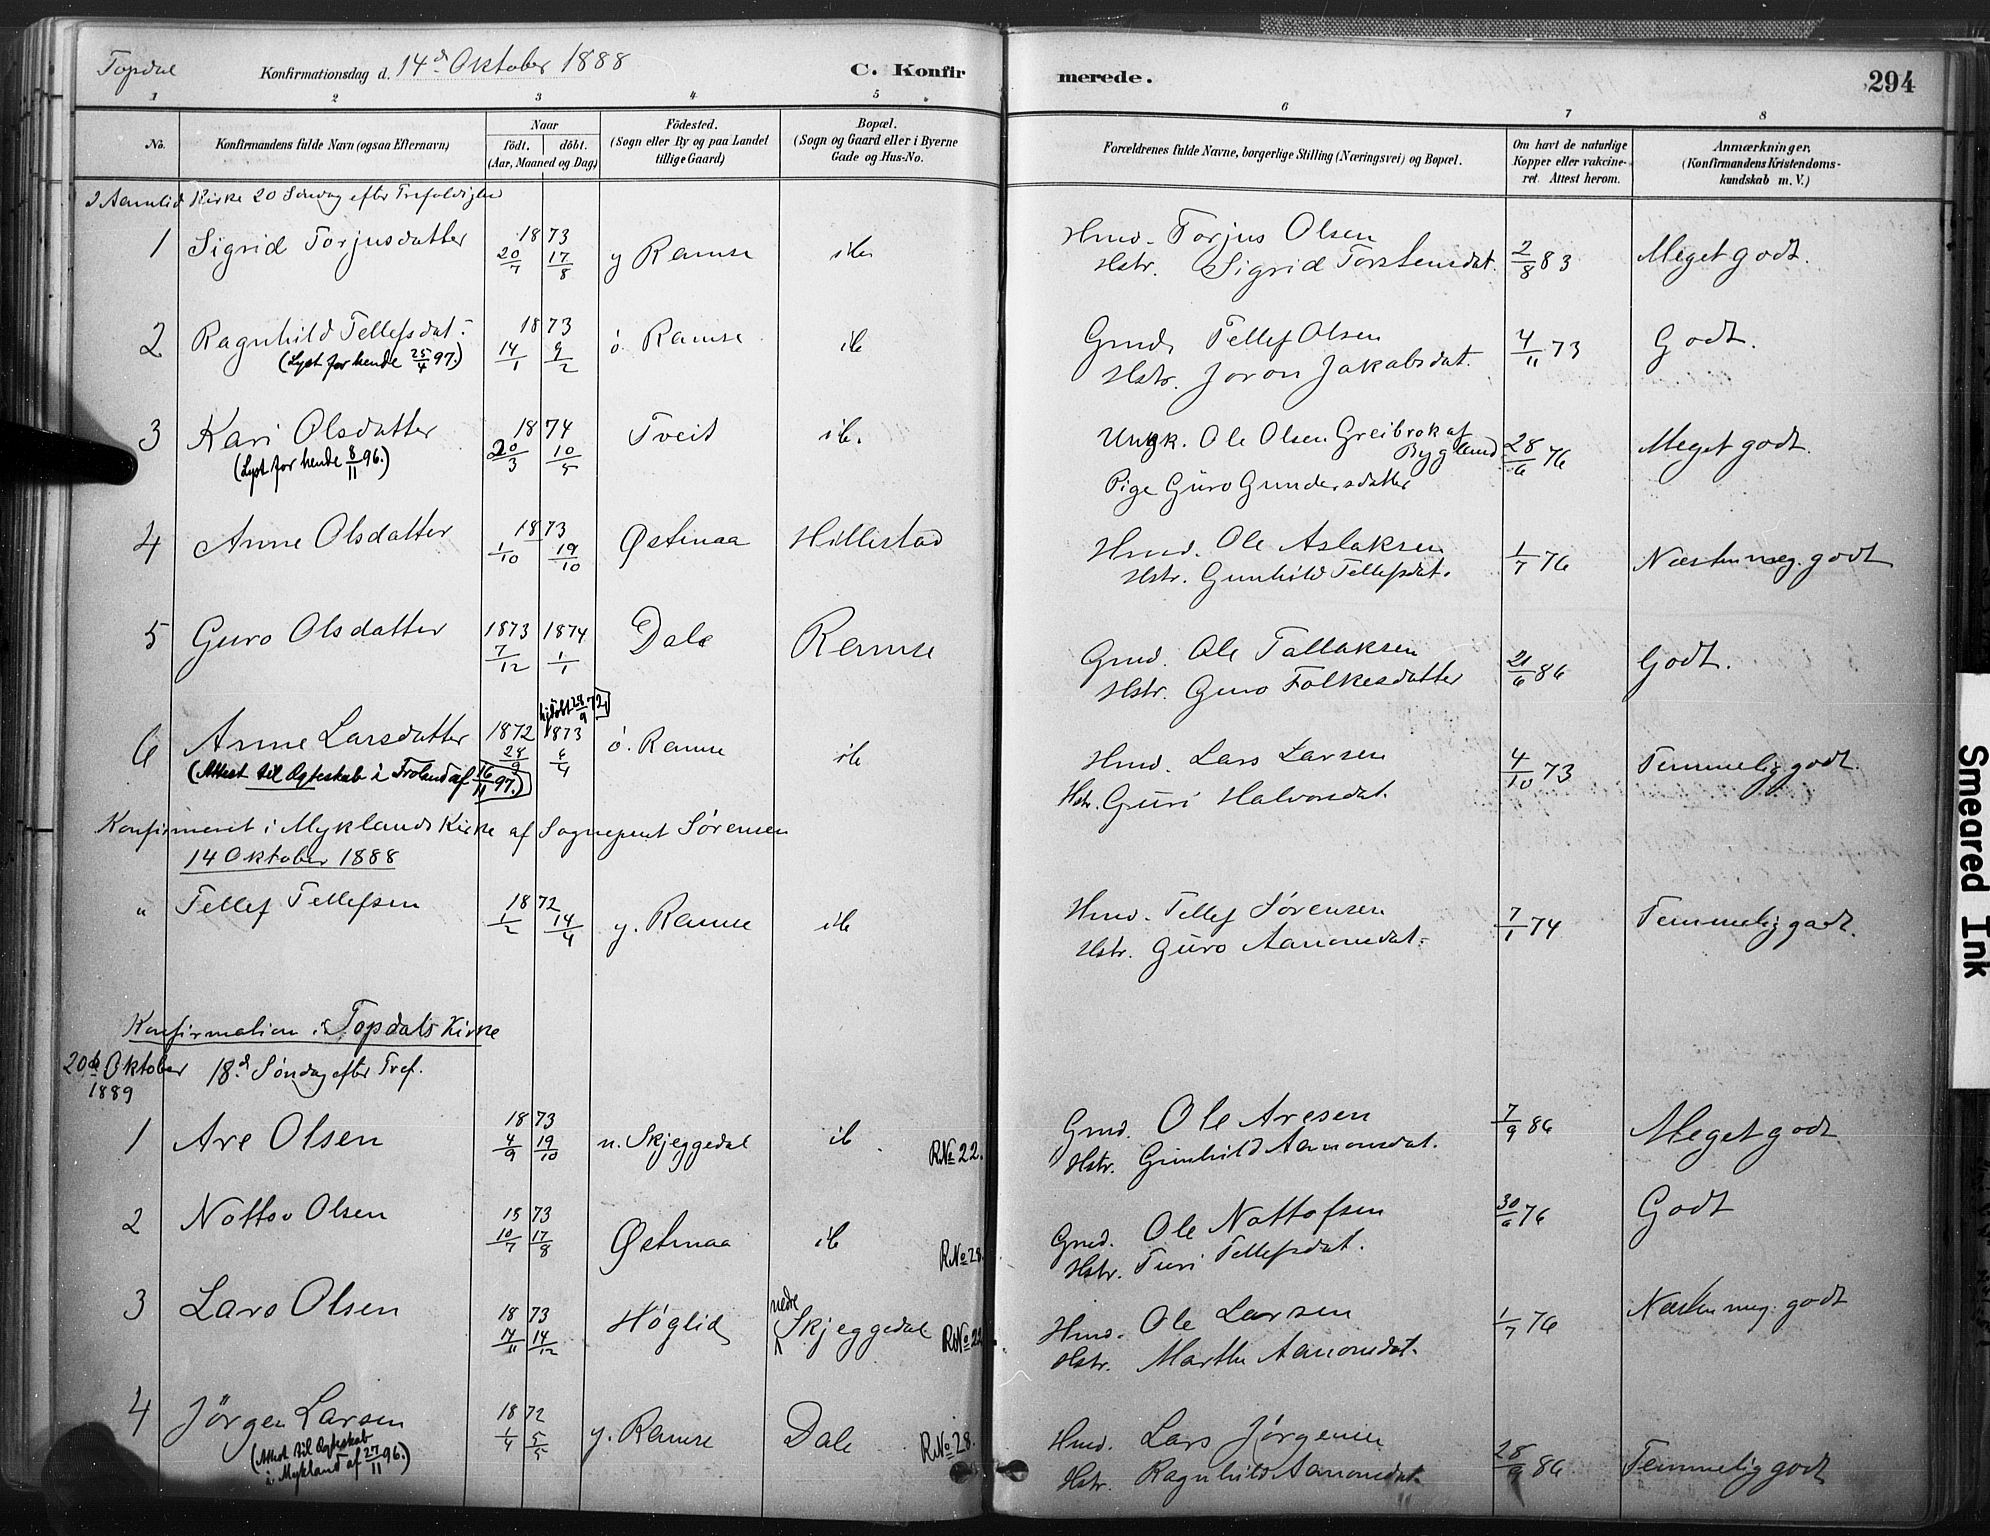 Topdal Konfirmationsdag d. 14d Oktober 1888 C. Konfirmerede. 294
1 2 3 4 5 6 7 8
No. Konfirmandens fulde Navn (ogsaa Efternavn) Naar født. døbt. (Aar, Maaned og Dag) Födested. (Sogn eller By og paa Landet tillige Gaard) Bopæl. (Sogn og Gaard eller i Byerne Gade og Hus-No. Forældrenes fulde Navne, borgerlige Stilling (Næringsvei) og Bopæl. Om havt de naturlige Kopper eller vakcineret. Attest herom. Anmærkninger. (Konfirmandens Kristendomskundskab m. V.)
I Aamlid Kirke 20 Søndag efter Trefoldighed
1 Sigrid Torjusdatter 1873 20/7 17/8 y Ramse ib. Hmd. Torjus Olsen 2/8 83 Meget godt.
Hstr. Sigrid Torstensdat.
2 Ragnhild Tellefsdat. 1873 14/1 9/2 ö. Ramse ib Gmd. Tellef Olsen 4/11 73 Godt.
(Lyst for hende 25/4 97.) Hstr. Joron Jakobsdat.
3 Kari Olsdatter 1874 20/3 10/5 Tveit ib. Ungk. Ole Olsen Greibrok af Bygland 28/6 76 Meget godt.
(Lyst for hende 8/11 96.) Pige Guro Gundersdatter
4 Anne Olsdatter 1873 1/10 19/10 Østmaa Hillestad Hmd. Ole Aslaksen 1/7 76 Næsten meg. godt
Hstr. Gunhild Tellefsdat.
5 Guro Olsdatter 1873 7/12 1874 1/1 Dale Ramse Gmd. Ole Tallaksen 21/6 86 Godt.
Hstr. Guro Folkesdatter
hjdöbt 29/9 72
6 Anne Larsdatter 1872 28/9 1873 6/4 ö. Ramse ib Hmd. Lars Larsen 4/10 73 Temmelig godt.
(Attest til Ægteskab i Froland af 16/11 97.) Hstr. Guri Halvorsdat.
Konfirmeret i Myklands Kirke af Sognepræst Sørensen
14 Oktober 1888
" Tellef Tellefsen 1872 1/2 14/4 y. Ramse ib Hmd. Tellef Sørensen 7/1 74 Temmelig godt.
Hstr. Guro Aanonsdat.
Konfirmation i Topdals Kirke
20de Oktober 1889 18d Søndag efter Tref.
1 Are Olsen 1873 4/9 19/10 n. Skjeggedal ib R.No 22. Gmd. Ole Aresen 7/9 86 Meget godt
Hstr. Gunhild Aanonsdat.
2 Nottov Olsen 1873 10/7 17/8 Østmaa ib R.No 28. Gmd. Ole Nottofsen 30/6 76 Godt
Hstr. Turi Tellefsdat.
3 Lars Olsen 1873 7/11 14/12 Høglid nedre Skjeggedal R.No 22. Hmd. Ole Larsen 1/7 76 Næsten meg. godt
Hstr. Marthe Aanonsdat.
4 Jørgen Larsen 1872 1/4 5/5 y. Ramse Dale R.No 28. Hmd. Lars Jørgensen 28/9 86 Temmelig godt
(Attest til Ægteskab i Mykland af 27/11 96.) Hstr. Ragnhild Aanonsdat.
Smeared Ink